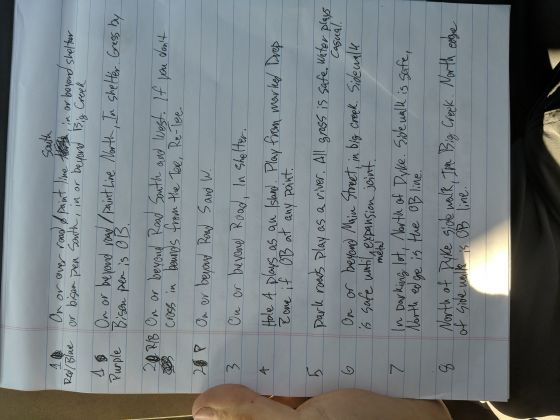 1 On or over road / paint line South, in or beyond shelter
Red/Blue or bison pen South, in or beyond Big Creek
1 On or beyond road / paint line North, In shelter. Grass by
Purple Bison pen is OB.
2 R/B On or beyond Road South and West. If you don't
cross in bounds from the Tee, Re-Tee.
2 P On or beyond Road S and W.
3 On or beyond Road, In shelter.
4 Hole 4 plays as an Island Play from marked Drop
Zone if OB at any point.
5 park roads play as a river. All grass is safe. Water plays
casual.
6 On or beyond Main Street in big creek Sidewalk
is safe until metal expansion joint.
7 In parking lot, North of Dyke Sidewalk is safe,
North edge is the OB line.
8 North of Dyke sidewalk, In Big Creek North edge
of sidewalk is OB line.